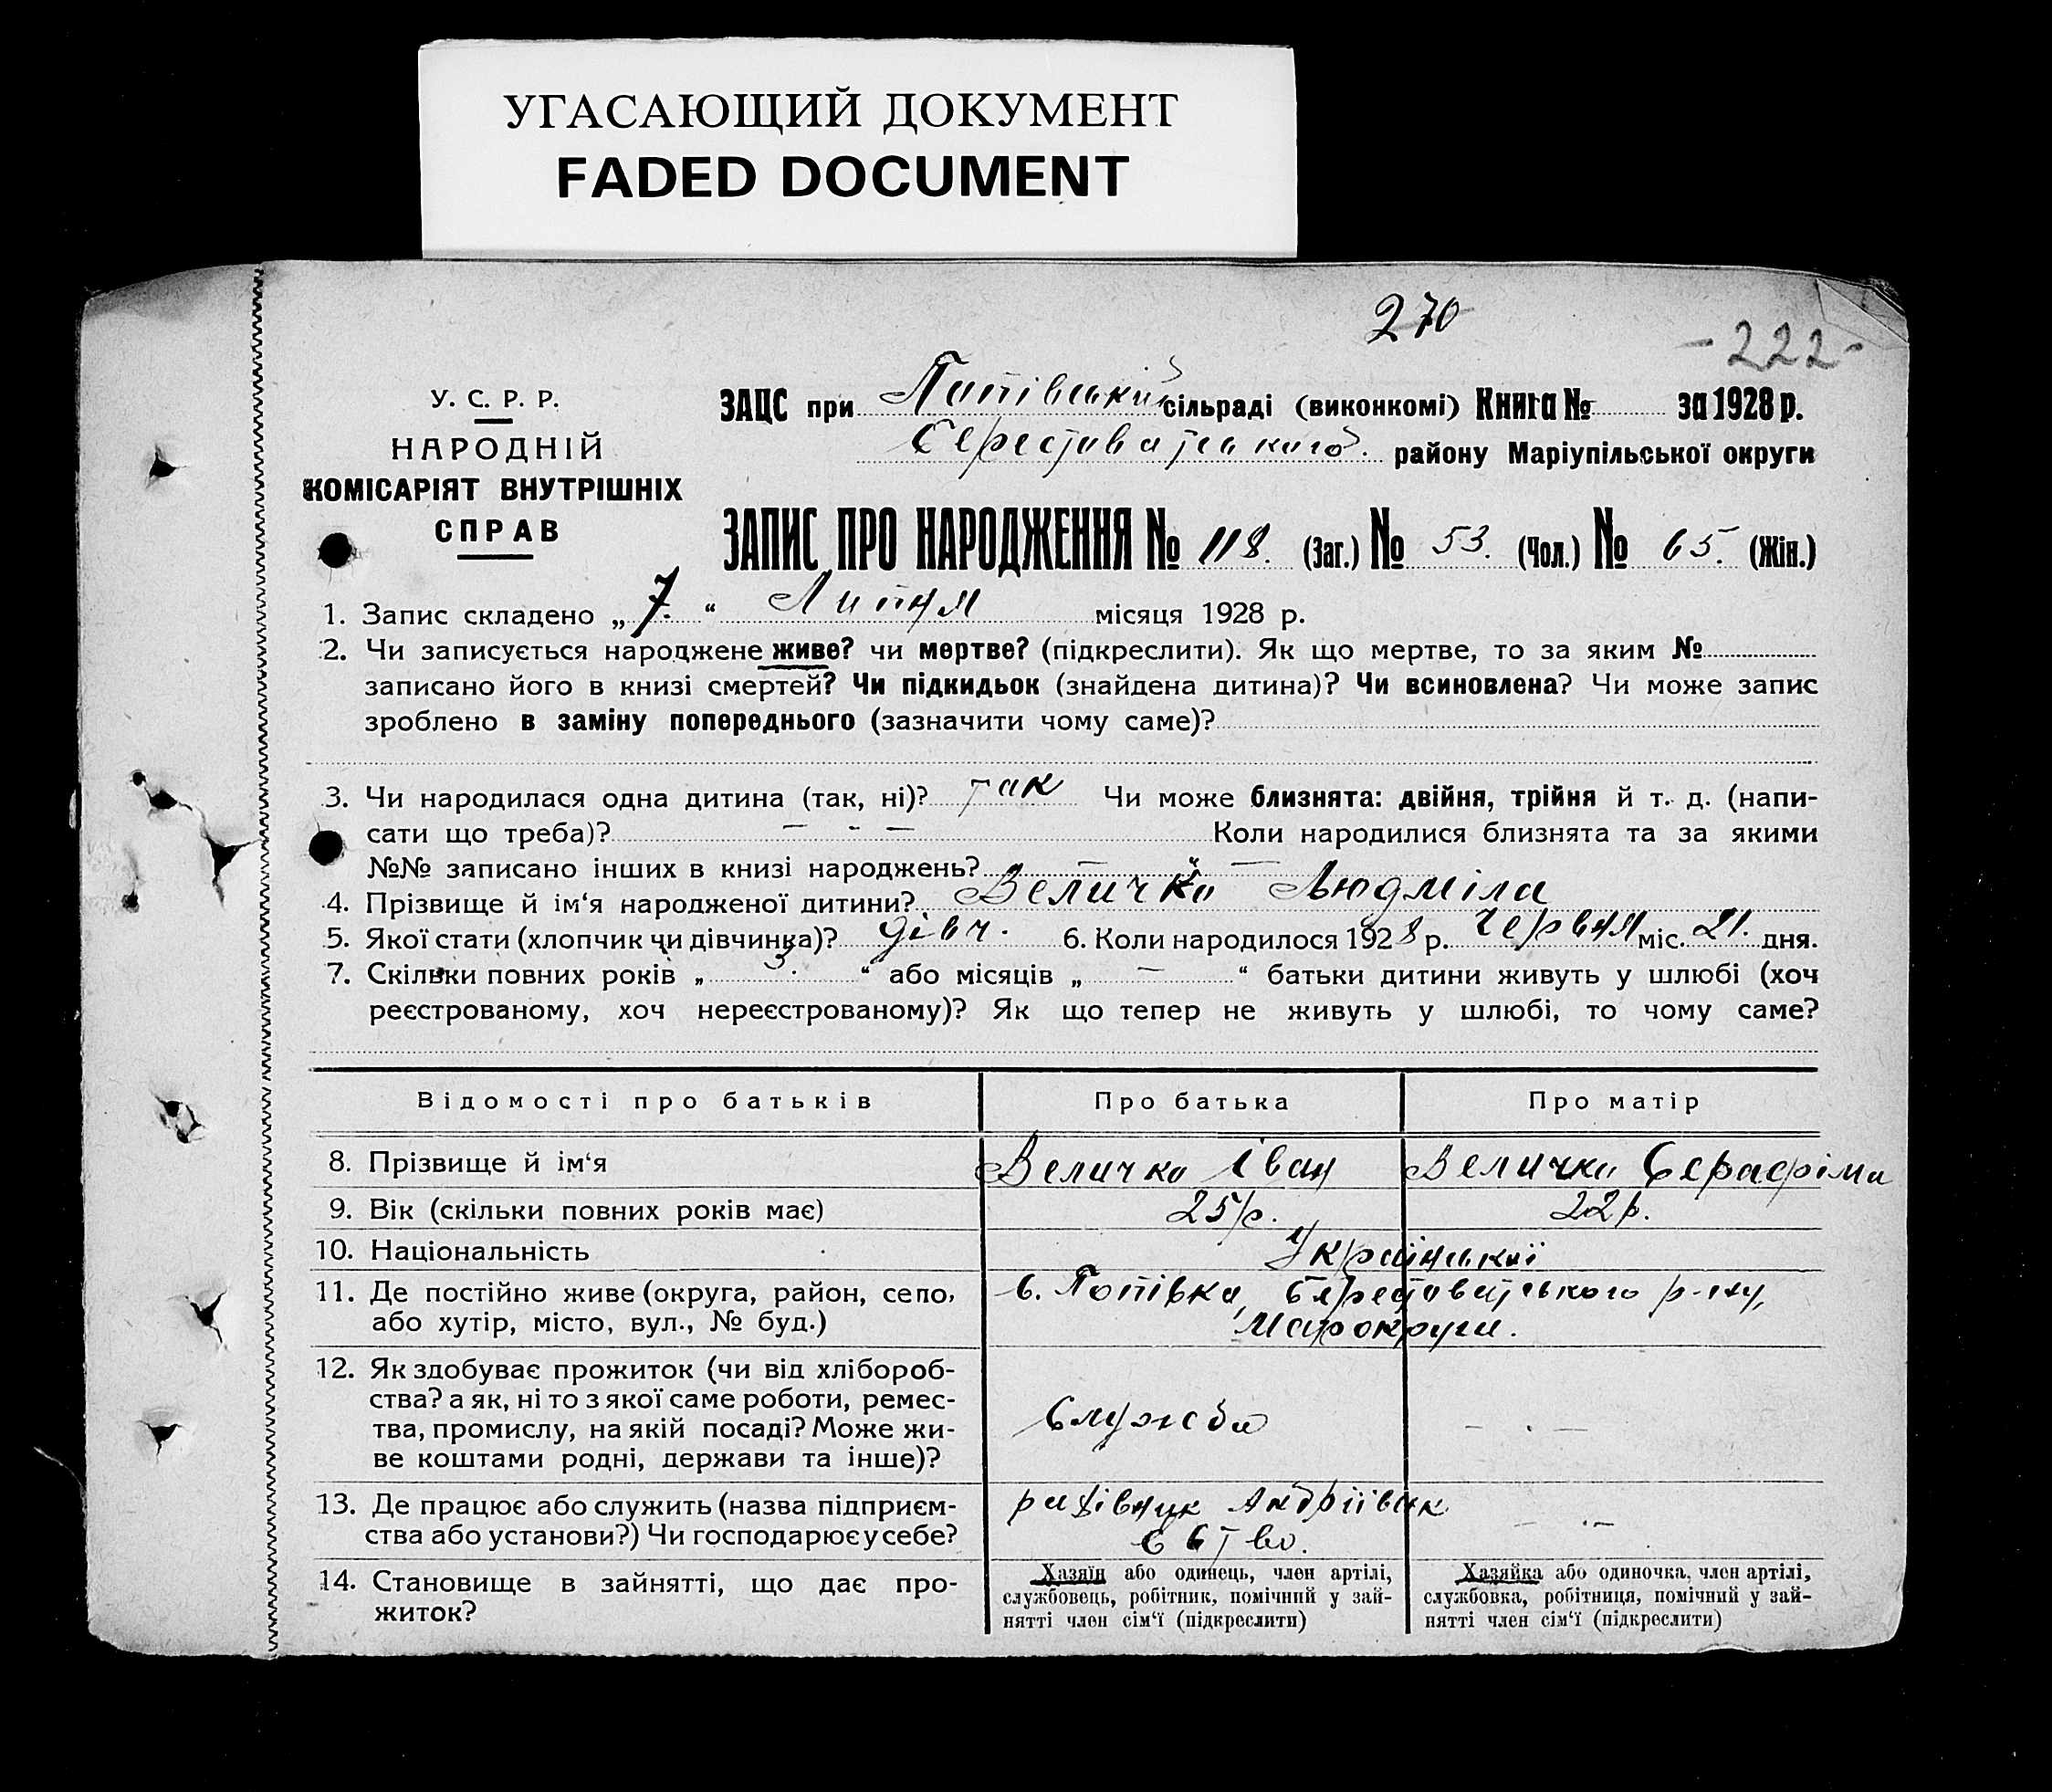 УГАСАЮЩИЙ ДОКУМЕНТ
FADED DOCUMENT
270
-222-
У. С. Р. Р.
НАРОДНІЙ
КОМІСАРІЯТ ВНУТРІШНІХ
СПРАВ
ЗАЦС при Попівській сільраді (виконкомі) Книга № за 1928 р.
району Маріупільської округи
ЗАПИС ПРО НАРОДЖЕННЯ № 118. (Заг.) № 53. (Чол.) № 65. (Жін.)
1. Запис складено „ 7. “ Липня місяця 1928 р.
2. Чи записується народжене живе? чи мертве? (підкреслити). Як що мертве, то за яким №
записано його в книзі смертей? Чи підкидьок (знайдена дитина)? Чи всиновлена? Чи може запис
зроблено в заміну попереднього (зазначити чому саме)?
3. Чи народилася одна дитина (так, ні)? так Чи може близнята: двійня, трійня й т. д. (напи-
сати що треба)? — - — Коли народилися близнята та за якими
№№ записано інших в книзі народжень? — „ —
4. Прізвище й ім‘я народженої дитини? Величко Людміла
5. Якої стати (хлопчик чи дівчинка)? дівч. 6. Коли народилося 1928 р. червня міс. 21. дня.
7. Скільки повних років „ 3. “ або місяців „ — “ батьки дитини живуть у шлюбі (хоч
реєстрованому, хоч нереєстрованому)? Як що тепер не живуть у шлюбі, то чому саме?
Відомості про батьків Про батька Про матір
8. Прізвище й ім‘я Величко Іван Величко Серафіма
9. Вік (скільки повних років має) 25 р. 22 р.
10. Національність Української
11. Де постійно живе (округа, район, село, с. Попівка, р-ну,
або хутір, місто, вул., № буд.) Марокруги.
12. Як здобуває прожиток (чи від хлібороб-
ства? а як, ні то з якої саме роботи, ремес-
тва, промислу, на якій посаді? Може жи- Служба - . —
ве коштами родні, держави та інше)?
13. Де працює або служить (назва підприєм-
ства або установи?) Чи господарює у себе? — . —
14. Становище в зайнятті, що дає про-
житок?
Хазяїн або одинець, член артілі,
службовець, робітник, помічний у зай-
нятті член сім‘ї (підкреслити)
Хазяйка або одиночка, член артілі,
службовка, робітниця, помічний у зай-
нятті член сім‘ї (підкреслити)